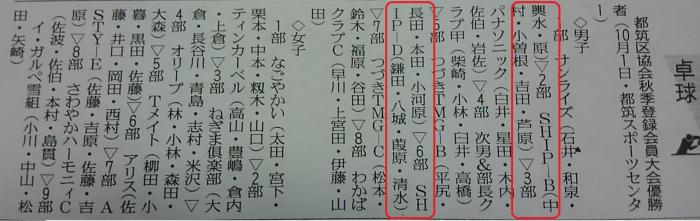 卓球
都筑区協会秋季登録会員大会優勝
者（10月1日・都筑スポーツセンタ
ー）
◇男子
1部 サンライズ（石井・和泉・
興水・原）▽2部 SHIP―B（中
村・小曽根・吉田・芦原）▽3部
パナソニック（白井・星田・木内・
佐伯・岩佐）▽4部 次男＆部長ク
ラブ甲（柴崎・小林・臼井・高橋）
▽5部 つづきTMG―B（平尻・
長田・本田・小河原）▽6部 SH
IP―D（鎌田・八城・葭原・清水）
▽7部 つづきTMG―C（松本・
鈴木・福原・谷田）▽8部 わかば
クラブC（早川・上宮田・伊藤・山
田）
◇女子
1部 なごやかい（太田・宮下・
栗本・中本・籾木・山口）▽2部
ティンカーベル（高山・豊嶋・倉内
・上倉）▽3部 ねぎま倶楽部（大
倉・長谷川・青島・志村・米沢）▽
4部 オリーブ（林・小林・森田・
大森）▽5部 Tメイト（柳田・小
暮・黒田・佐藤）▽6部 アリス（佐
藤・井口・岡田・西村）▽7部 A
STYーE（佐藤・吉原・佐藤・吉
原）▽8部 さわやかハーモニィC
（佐波・佐伯・本村・島貫）▽9部
イ・ガルペ雪組（小川・中山・松
田・矢崎）